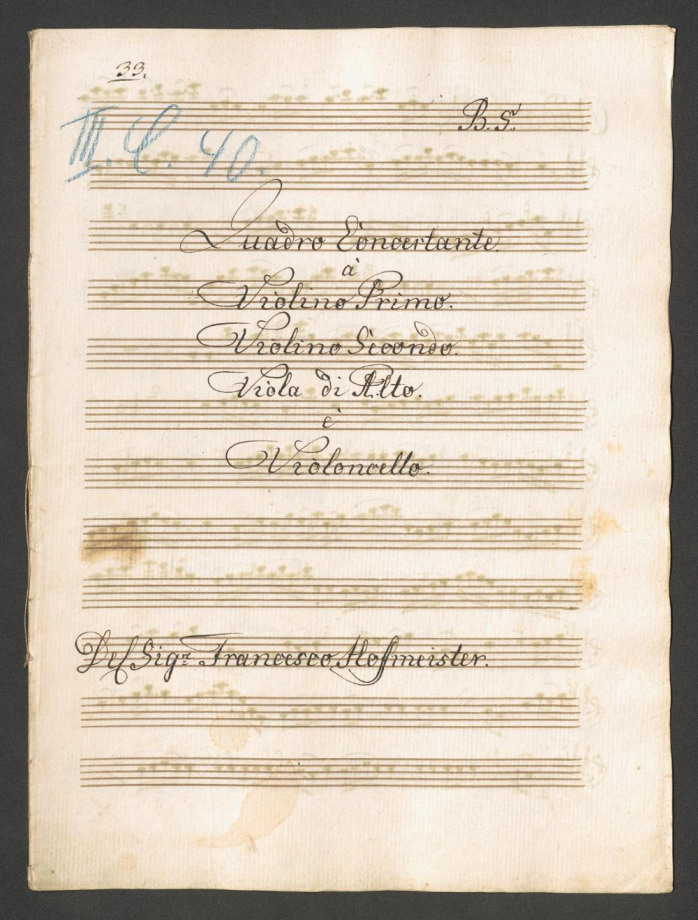 33.
B. S.
III. C. 40.
Quadro Concertante.
à
Violino Primo.
Violino Secondo.
Viola di Alto.
è
Violoncello.
Del Sigre Francesco Hoffmeister.